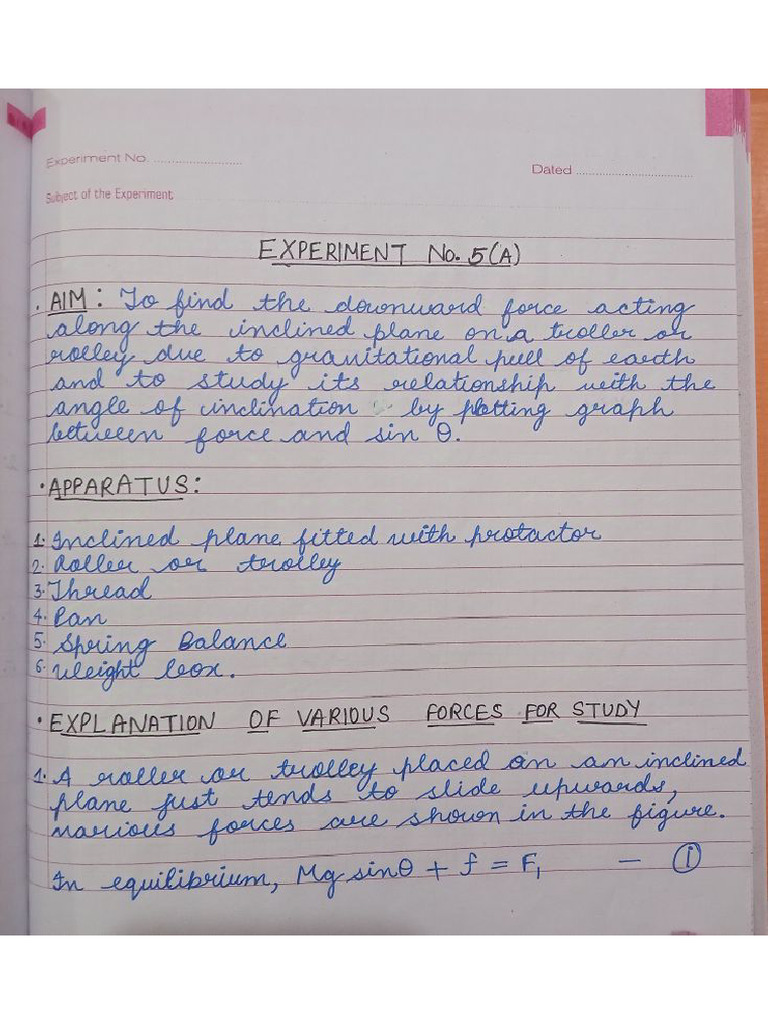 Experiment No. ..........................
Dated ....................................
Subject of the Experiment
EXPERIMENT No. 5(A)
• AIM : To find the downward force acting
along the inclined plane on a troller or
rolley due to gravitational pull of earth
and to study its relationship with the
angle of inclination by plotting graph
between force and sin θ.
• APPARATUS :
1. Inclined plane fitted with protactor
2. Roller or trolley
3. Thread
4. Pan
5. Spring Balance
6. Weight box.
• EXPLANATION OF VARIOUS FORCES FOR STUDY
1. A roller or trolley placed on an inclined
plane just tends to slide upwards,
various forces are shown in the figure.
In equilibrium, Mg sinθ + f = F₁ — (i)